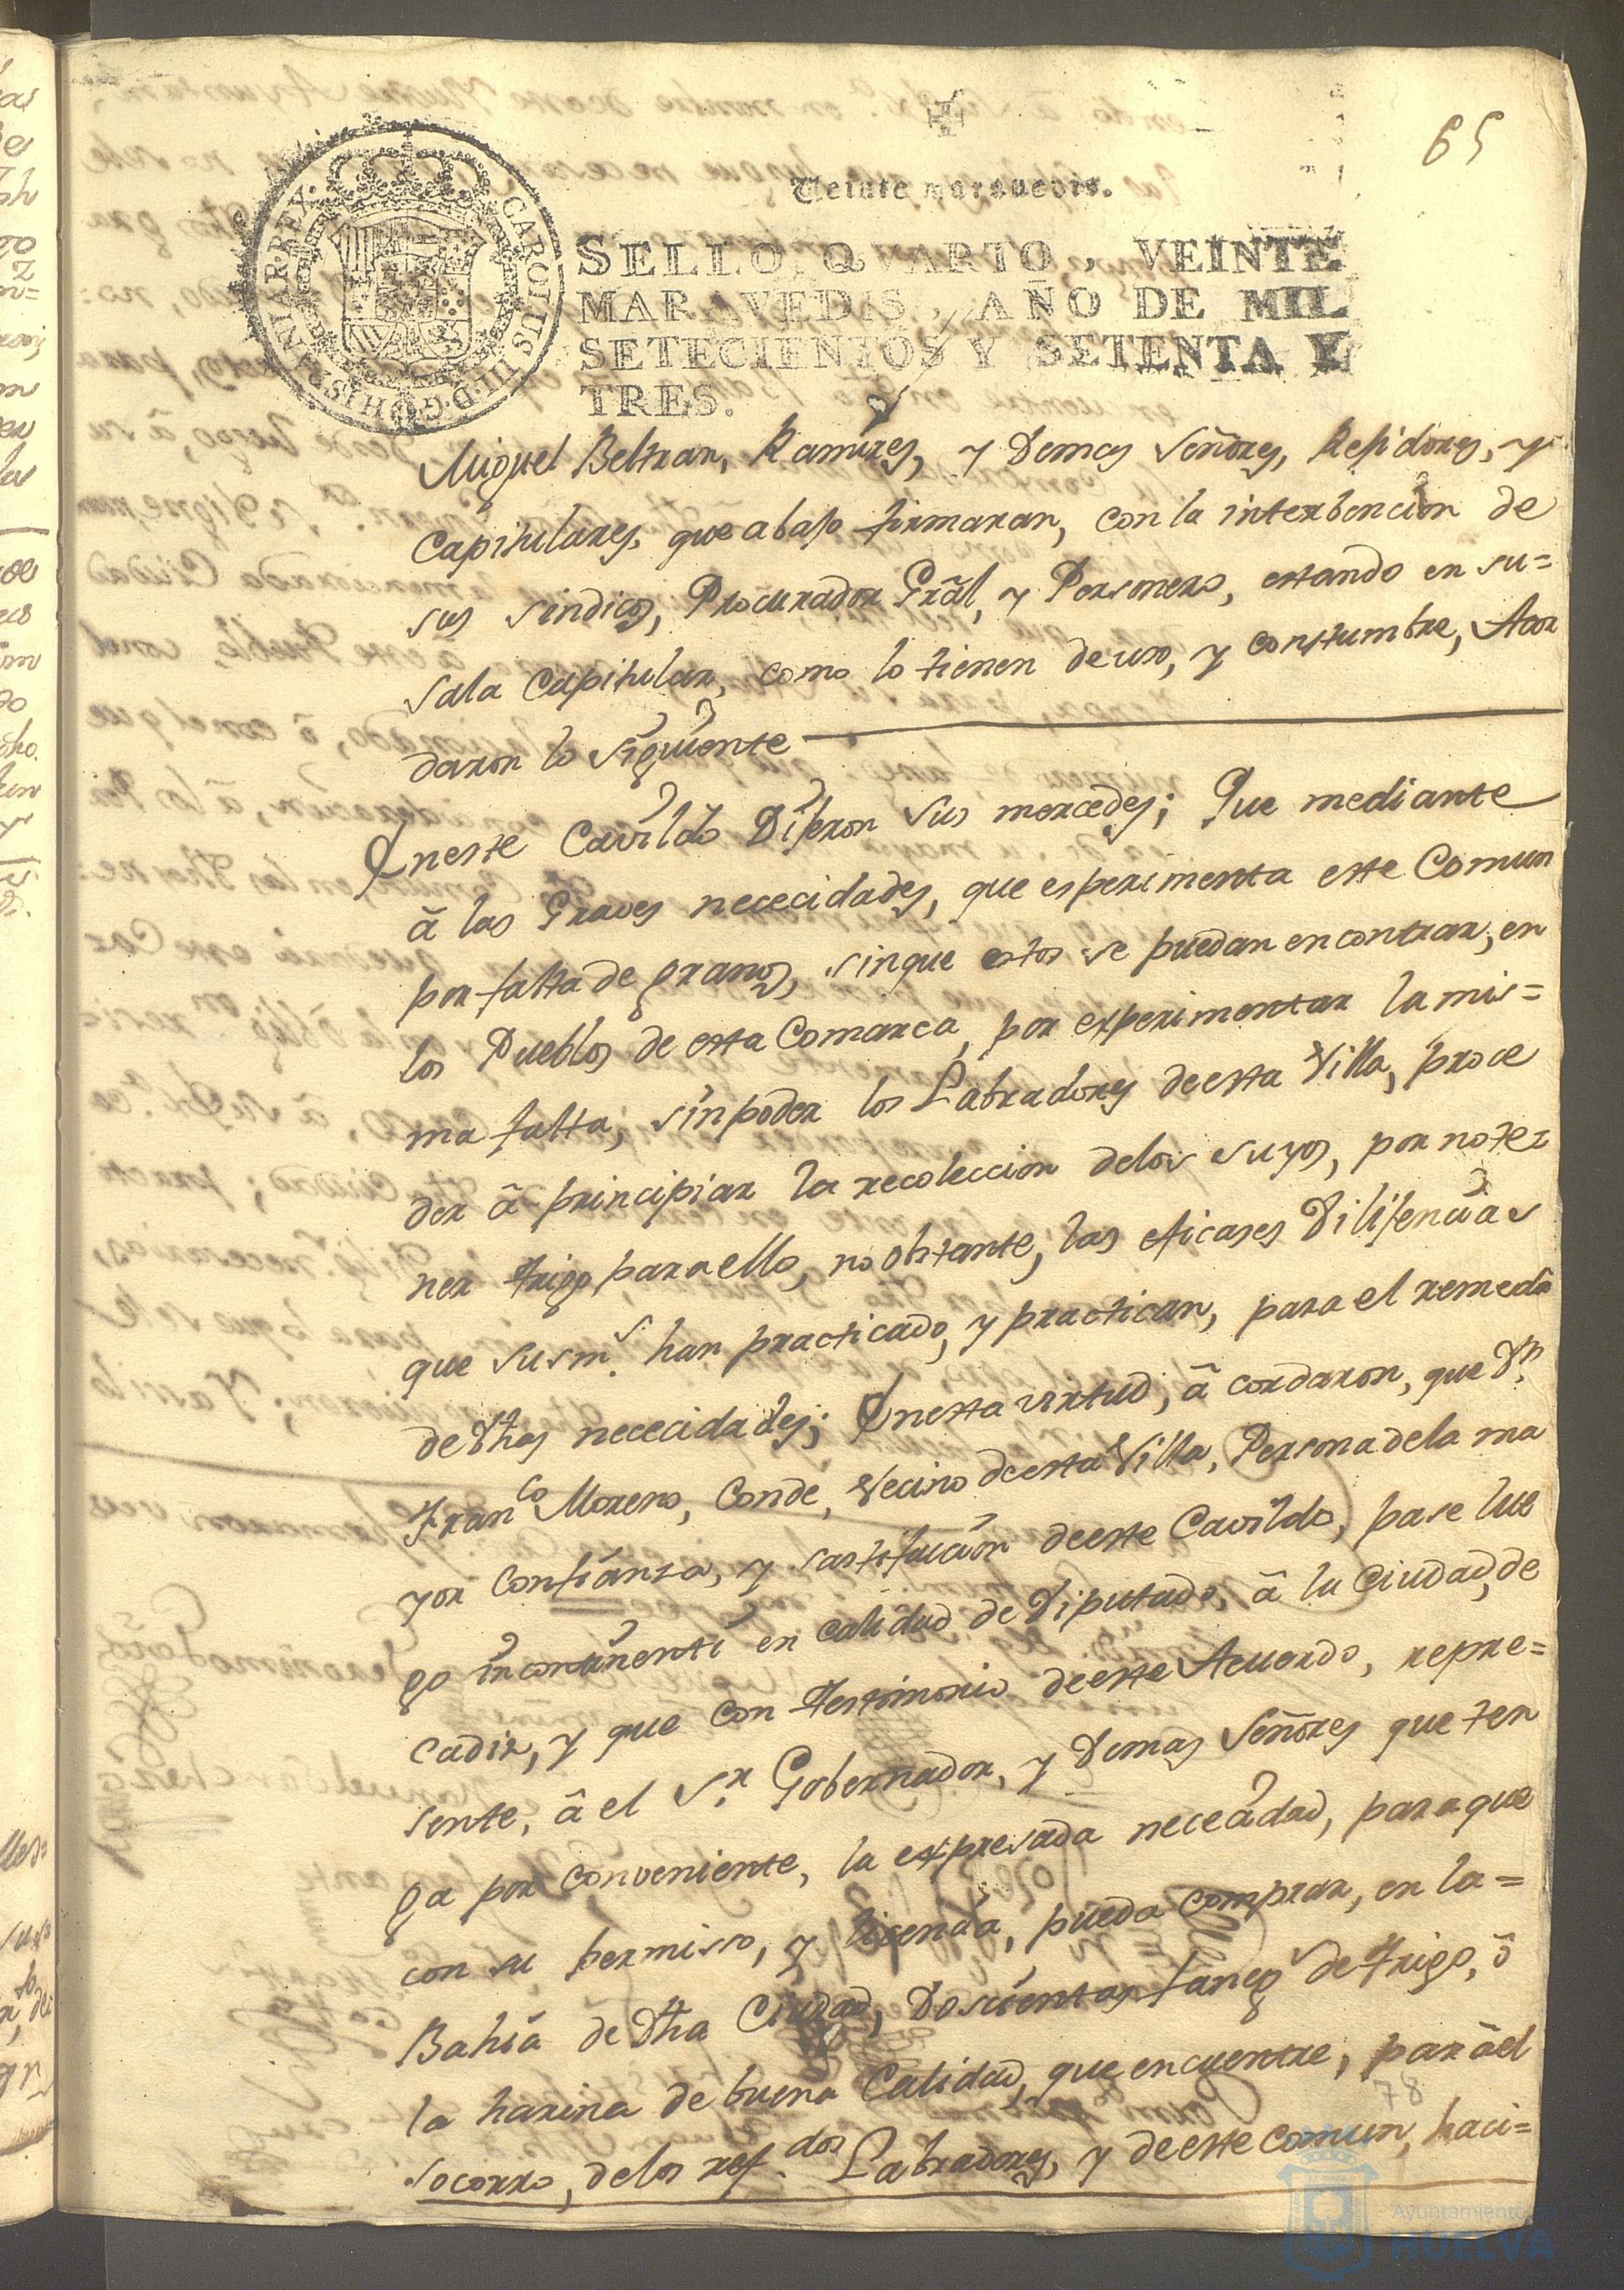 65
Veinte maravedis.
CAROLUS III D. G. HISPANIAR. REX.
SELLO QVARTO, VEINTE
MARAVEDIS, AÑO DE MIL
SETECIENTOS Y SETENTA Y
TRES.
Miguel Beltran, Ramires, y Demas Señores, Rejidores, y
Capitulares, que abajo firmaran, con la interbencion de
sus sindicos, Procurador Grãl, y Personero, estando en su=
sala Capitular, como lo tienen de uso, y constumbre, Acor
daron lo siguiente
Eneste Cavildo Dijeron sus mercedes; Que mediante
â las Graves nececidades, que esperimenta este Comun
por falta de granos, sinque estos se puedan encontrar, en
los Pueblos de esta Comarca, por experimentar la mis=
ma falta, sin poder los Labradores de esta Villa, proce
der â principiar la recoleccion delos suyos, por no te=
ner trigo para ello, no obstante, las eficases Dilijencias
que sus m.s han practicado, y practican, para el remedio
de dhas nececidades; Enesta virtud, â cordaron, que Dn.
Franco Moreno, Conde, Vecino de esta Villa, Persona dela ma
yor confianza, y sastifacion deeste Cavildo, pase lue
go incontinenti en calidad de Diputado, â la Ciudad, de
Cadiz, y que con testimonio deeste Acuerdo, repre=
sente, â el S.r Gobernador, y Demas Señores que ten
ga por conveniente, la expresada nececidad, para que
con su permisso, y licencia, pueda comprar, en la=
Bahia de dha Ciudad, Doscientas faneg.s de trigo, ô
la harina de buena Calidad, que encuentre, para el
socorro, delos ref.dos Labradores, y deeste comun, haci=
78
Ayuntamiento de
HUELVA